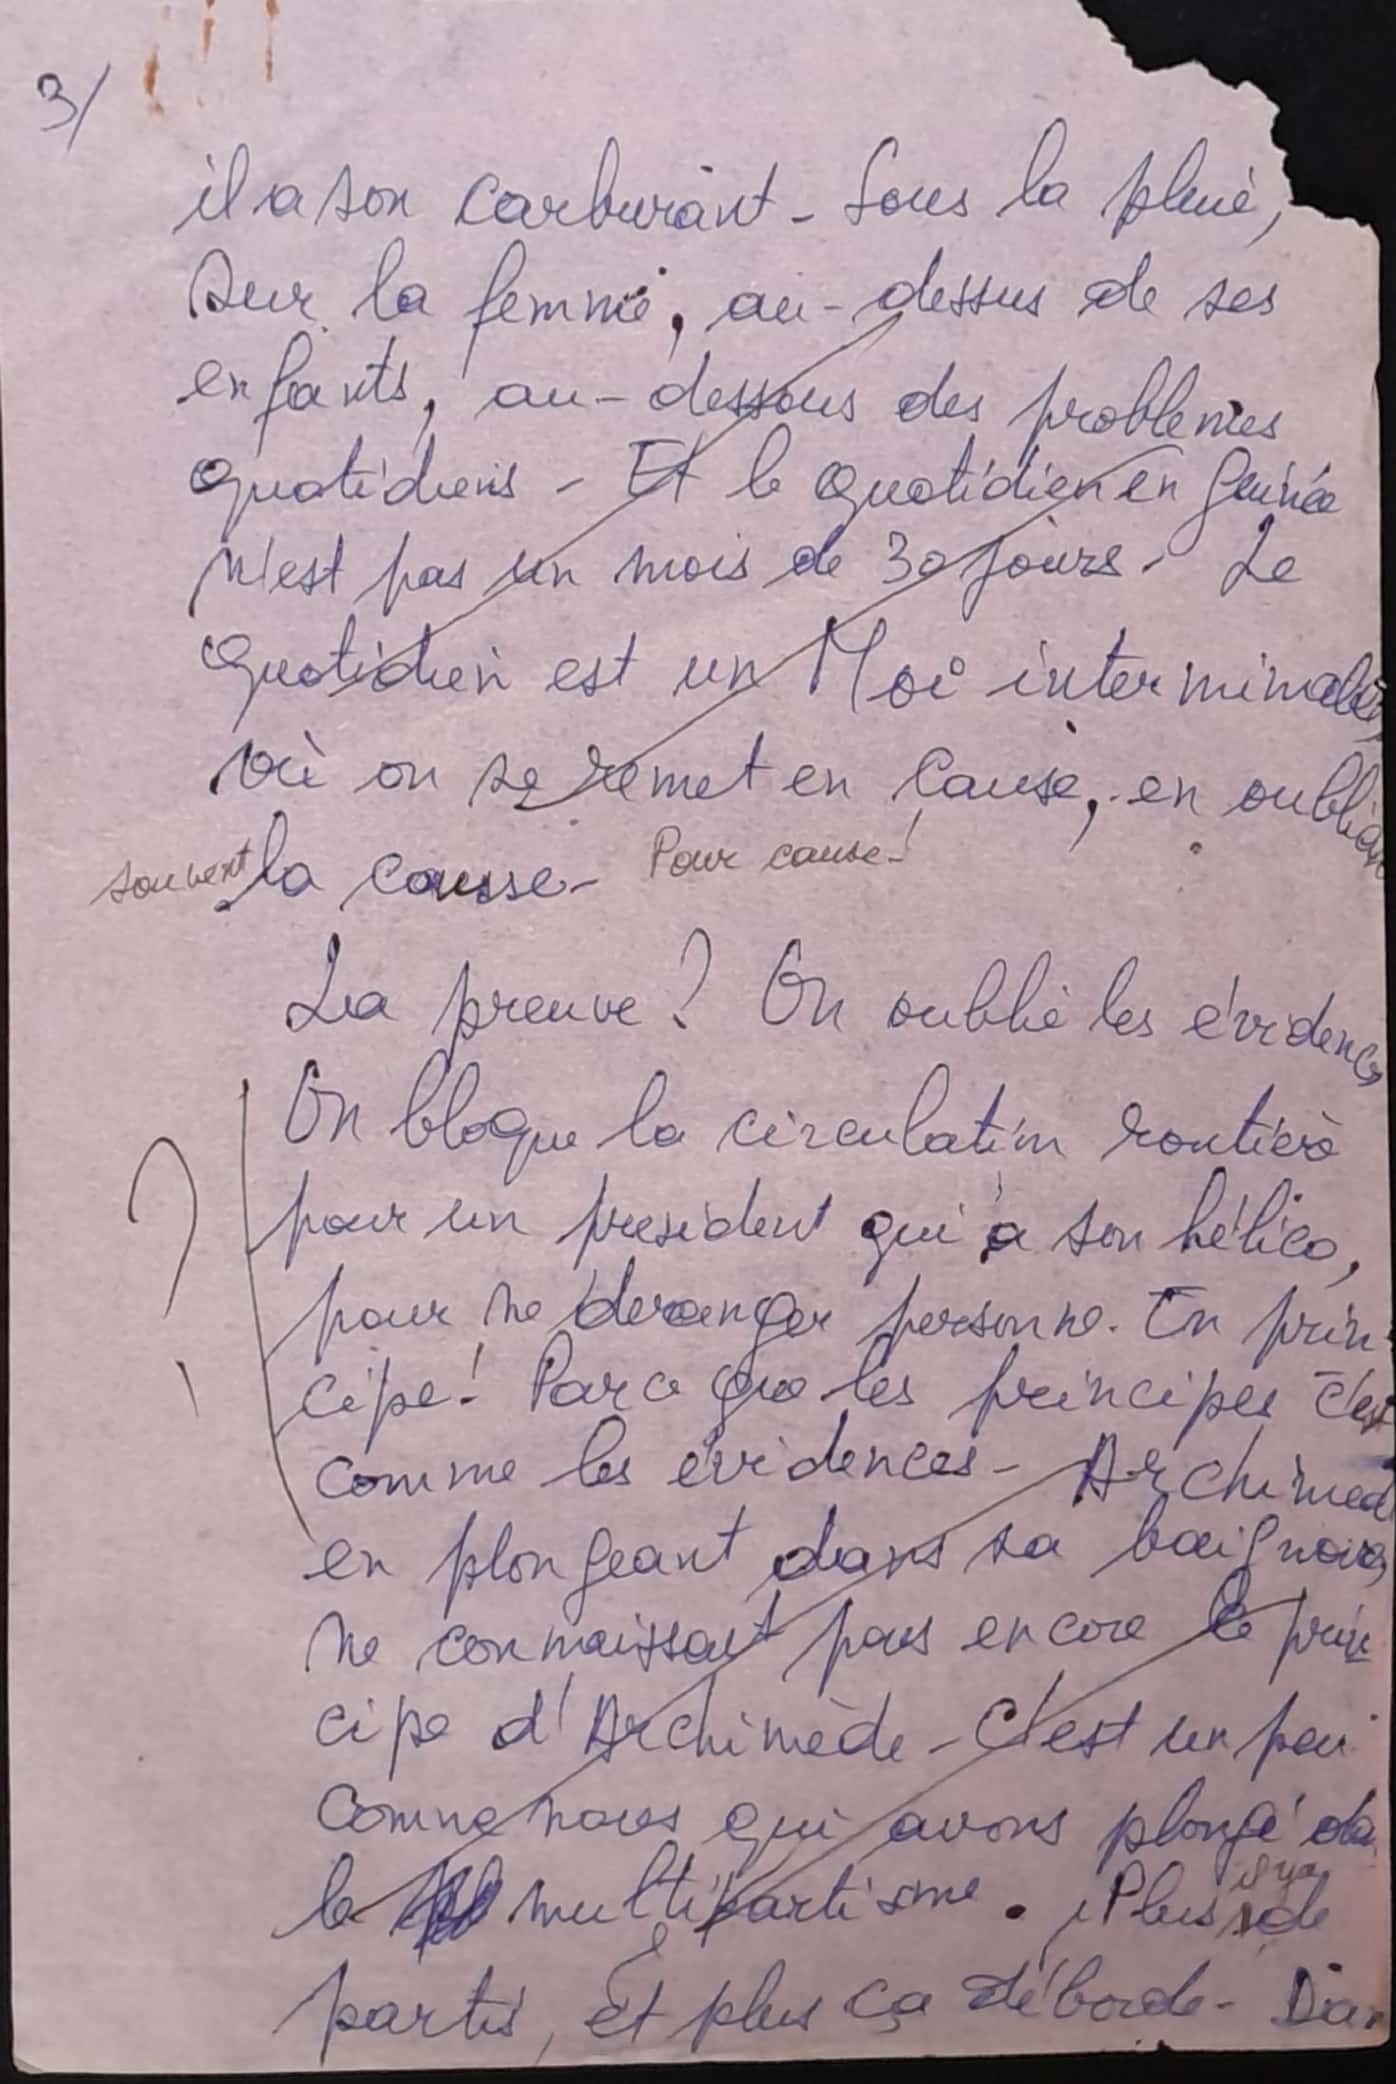 3/
il a son carburant - Sous la pluie,
sur la femme, au-dessus de ses
enfants, au-dessous des problemes
quotidiens - Et le quotidien en Guinée
n'est pas un mois de 30 jours - Le
quotidien est un Moi interminable,
où on se remet en cause, en oubliant
souvent la causse - Pour cause!
La preuve? On oublie les évidences
On bloque la circulation routière
pour un president qui a son hélico,
pour ne deranger personne. En prin-
cipe! Parce que les principes c'est
comme les évidences - Archimed
en plongeant dans sa baignoire,
ne connaissait pas encore le prin
cipe d'Archimède - C'est un peu
comme nous qui avons plongé da
le multipartisme. Plus il y a de
partis, et plus ça déborde - Dan
?